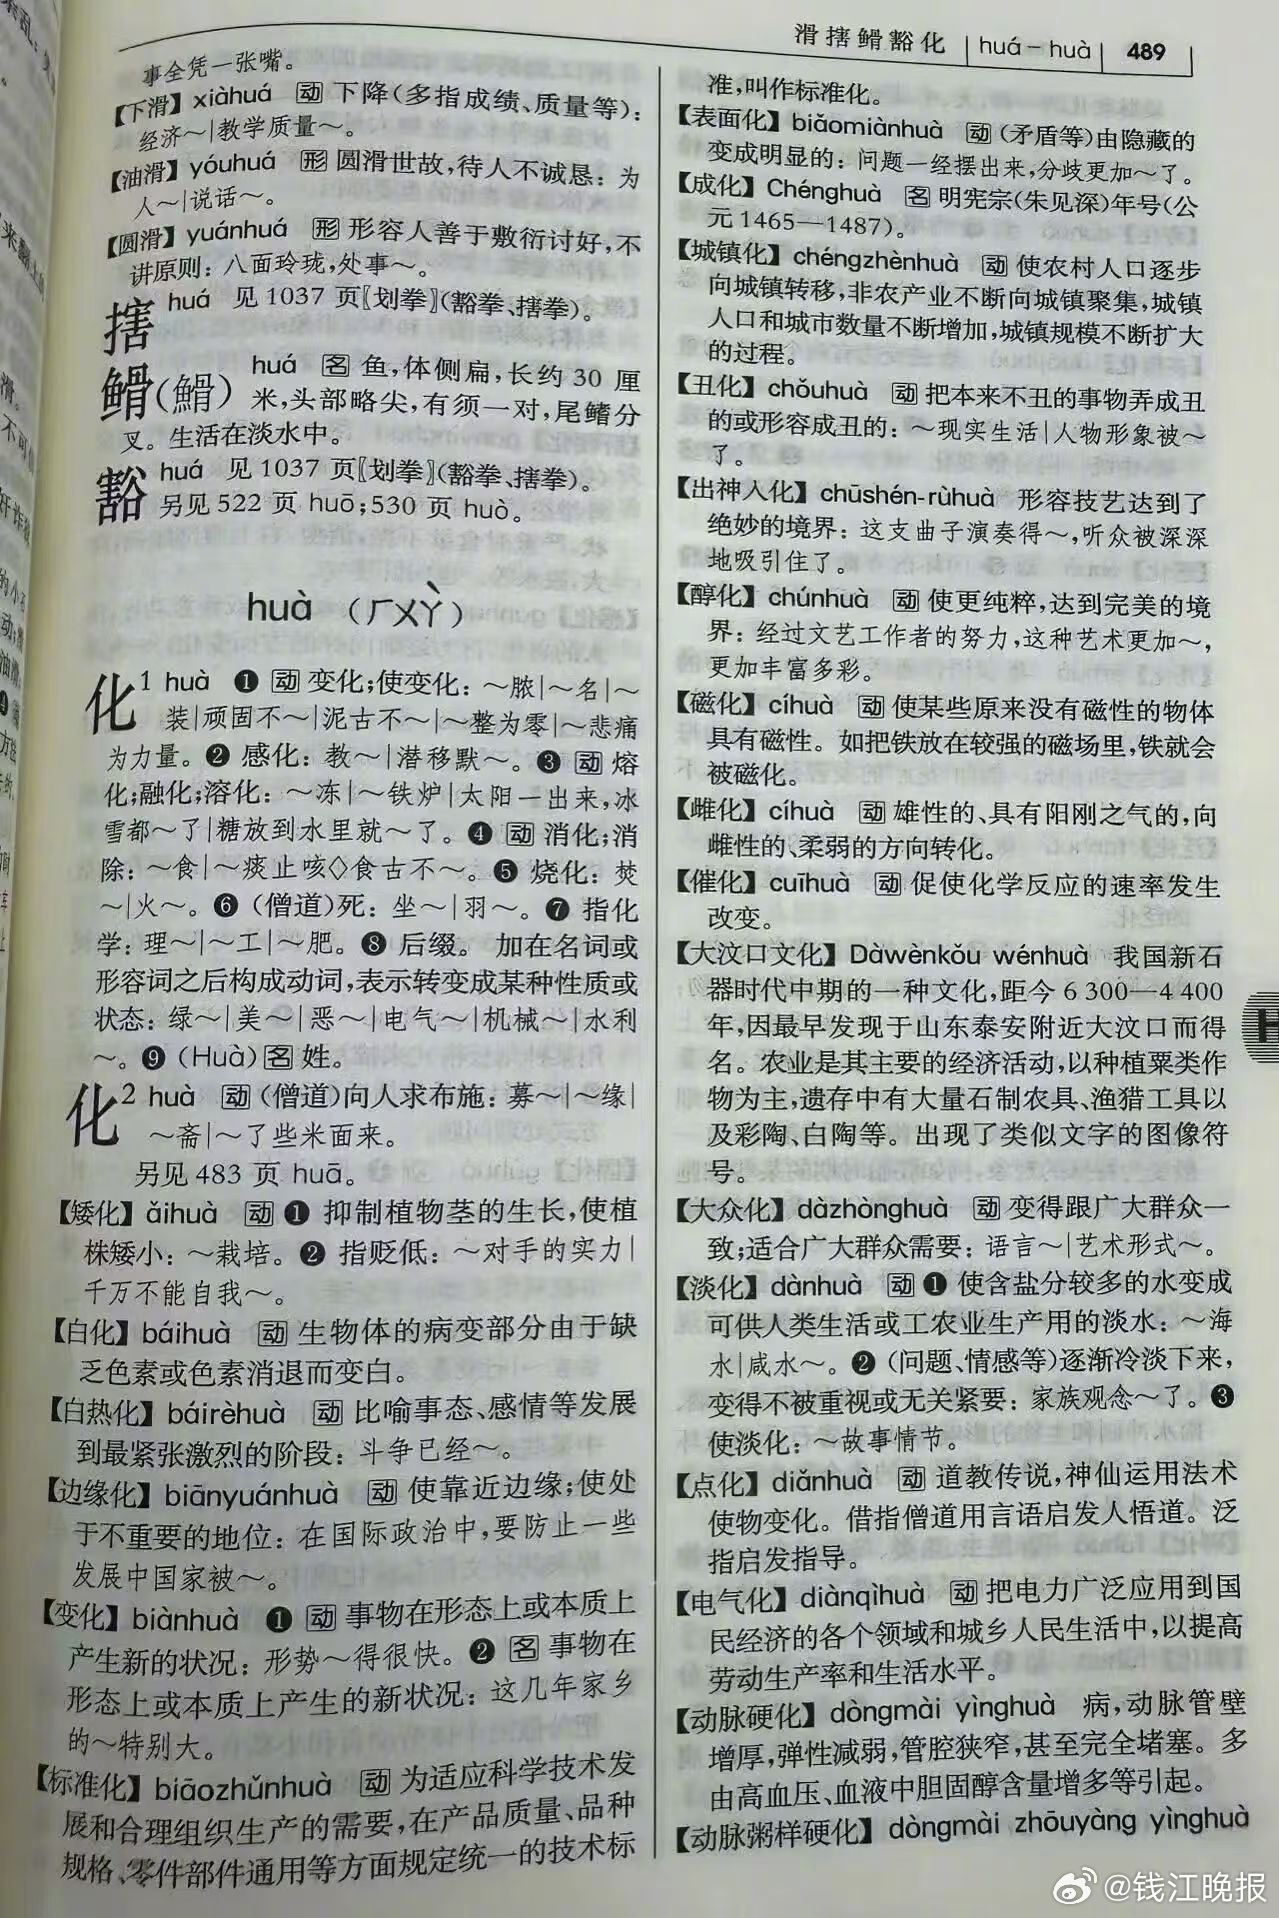 滑搳䱻豁化 huá－huà 489
事全凭一张嘴。
【下滑】xiàhuá 动 下降(多指成绩、质量等)：
经济～|教学质量～。
【油滑】yóuhuá 形 圆滑世故,待人不诚恳：为
人～|说话～。
【圆滑】yuánhuá 形 形容人善于敷衍讨好,不
讲原则：八面玲珑,处事～。
搳 huá 见1037页〖划拳〗(豁拳、搳拳)。
(䱻) huá 名 鱼,体侧扁,长约30厘
米,头部略尖,有须一对,尾鳍分
叉。生活在淡水中。
豁 huá 见1037页〖划拳〗(豁拳、搳拳)。
另见522页 huō;530页 huò。
huà (ㄏㄨㄚˋ)
化1 huà ❶ 动 变化;使变化：～脓|～名|～
装|顽固不～|泥古不～|～整为零|～悲痛
为力量。❷ 感化：教～|潜移默～。❸ 动 熔
化;融化;溶化：～冻|～铁炉|太阳一出来,冰
雪都～了|糖放到水里就～了。❹ 动 消化;消
除：～食|～痰止咳◇食古不～。❺ 烧化：焚
～|火～。❻ (僧道)死：坐～|羽～。❼ 指化
学：理～|～工|～肥。❽ 后缀。加在名词或
形容词之后构成动词,表示转变成某种性质或
状态：绿～|美～|恶～|电气～|机械～|水利
～。❾ (Huà) 名 姓。
化2 huà 动 (僧道)向人求布施：募～|～缘|
～斋|～了些米面来。
另见483页 huā。
【矮化】ǎihuà 动 ❶ 抑制植物茎的生长,使植
株矮小：～栽培。❷ 指贬低：～对手的实力|
千万不能自我～。
【白化】báihuà 动 生物体的病变部分由于缺
乏色素或色素消退而变白。
【白热化】báirèhuà 动 比喻事态、感情等发展
到最紧张激烈的阶段：斗争已经～。
【边缘化】biānyuánhuà 动 使靠近边缘;使处
于不重要的地位：在国际政治中,要防止一些
发展中国家被～。
【变化】biànhuà ❶ 动 事物在形态上或本质上
产生新的状况：形势～得很快。❷ 名 事物在
形态上或本质上产生的新状况：这几年家乡
的～特别大。
【标准化】biāozhǔnhuà 动 为适应科学技术发
展和合理组织生产的需要,在产品质量、品种
规格、零件部件通用等方面规定统一的技术标
准,叫作标准化。
【表面化】biǎomiànhuà 动 (矛盾等)由隐藏的
变成明显的：问题一经摆出来,分歧更加～了。
【成化】Chénghuà 名 明宪宗(朱见深)年号(公
元1465—1487)。
【城镇化】chéngzhènhuà 动 使农村人口逐步
向城镇转移,非农产业不断向城镇聚集,城镇
人口和城市数量不断增加,城镇规模不断扩大
的过程。
【丑化】chǒuhuà 动 把本来不丑的事物弄成丑
的或形容成丑的：～现实生活|人物形象被～
了。
【出神入化】chūshén-rùhuà 形容技艺达到了
绝妙的境界：这支曲子演奏得～,听众被深深
地吸引住了。
【醇化】chúnhuà 动 使更纯粹,达到完美的境
界：经过文艺工作者的努力,这种艺术更加～,
更加丰富多彩。
【磁化】cíhuà 动 使某些原来没有磁性的物体
具有磁性。如把铁放在较强的磁场里,铁就会
被磁化。
【雌化】cíhuà 动 雄性的、具有阳刚之气的,向
雌性的、柔弱的方向转化。
【催化】cuīhuà 动 促使化学反应的速率发生
改变。
【大汶口文化】Dàwènkǒu wénhuà 我国新石
器时代中期的一种文化,距今6 300—4 400
年,因最早发现于山东泰安附近大汶口而得
名。农业是其主要的经济活动,以种植粟类作
物为主,遗存中有大量石制农具、渔猎工具以
及彩陶、白陶等。出现了类似文字的图像符
号。
【大众化】dàzhònghuà 动 变得跟广大群众一
致;适合广大群众需要：语言～|艺术形式～。
【淡化】dànhuà 动 ❶ 使含盐分较多的水变成
可供人类生活或工农业生产用的淡水：～海
水|咸水～。❷ (问题、情感等)逐渐冷淡下来,
变得不被重视或无关紧要：家族观念～了。❸
使淡化：～故事情节。
【点化】diǎnhuà 动 道教传说,神仙运用法术
使物变化。借指僧道用言语启发人悟道。泛
指启发指导。
【电气化】diànqìhuà 动 把电力广泛应用到国
民经济的各个领域和城乡人民生活中,以提高
劳动生产率和生活水平。
【动脉硬化】dòngmài yìnghuà 病,动脉管壁
增厚,弹性减弱,管腔狭窄,甚至完全堵塞。多
由高血压、血液中胆固醇含量增多等引起。
【动脉粥样硬化】dòngmài zhōuyàng yìnghuà
H
@钱江晚报